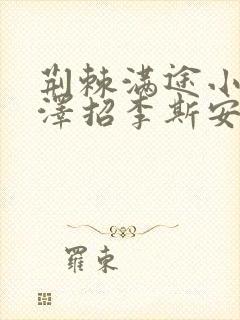 荆棘满途小
泽招李斯安
羅束